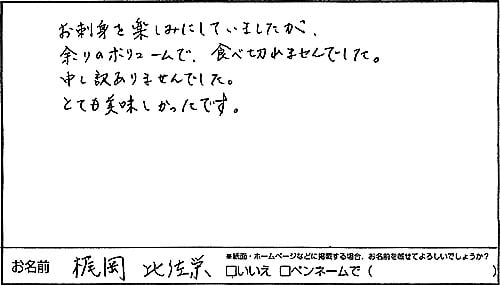 お刺身を楽しみにしていましたが、
余りのボリュームで、食べ切れませんでした。
申し訳ありませんでした。
とても美味しかったです。
お名前 梶岡 比佐栄
※紙面・ホームページなどに掲載する場合、お名前を載せてよろしいでしょうか?
□いいえ □ペンネームで( )